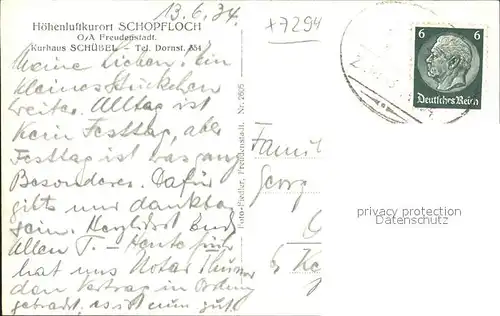 13.6.34.
x7294
Höhenluftkurort SCHOPFLOCH
O/A Freudenstadt.
Kurhaus SCHÜBEL – Tel. Dornst. 334
6 6
Deutsches Reich
Meine Lieben. Ein
kleines Stückchen
weiter. Alltag ist
kein Festtag, aber
Festtag ist was ganz
Besonderes. Dafür
gilts nur dankbar
sein. Herzlichst Euch
Allen T. – Heute früh
hat uns Notar
den Vertrag in Ordnung
gebracht, es ist nun gut
Foto-Fiedler, Freudenstadt. Nr. 2605
Famil
Georg
privacy protection
Datenschutz